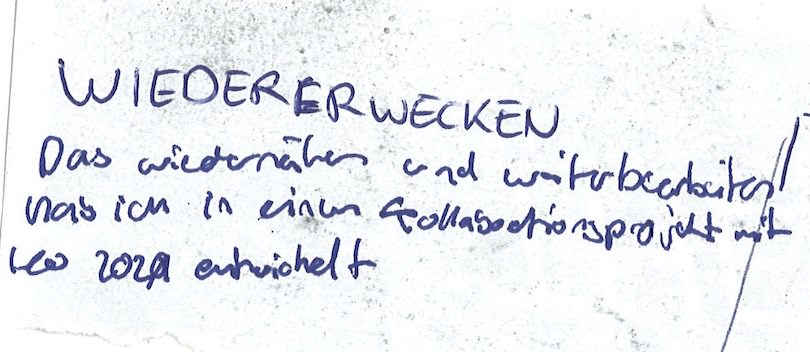 WIEDERERWECKEN
Das wiedernähen und weiterbearbeiten
hab ich in einem Kollaborationsprojekt mit
Leo 2021 entwickelt